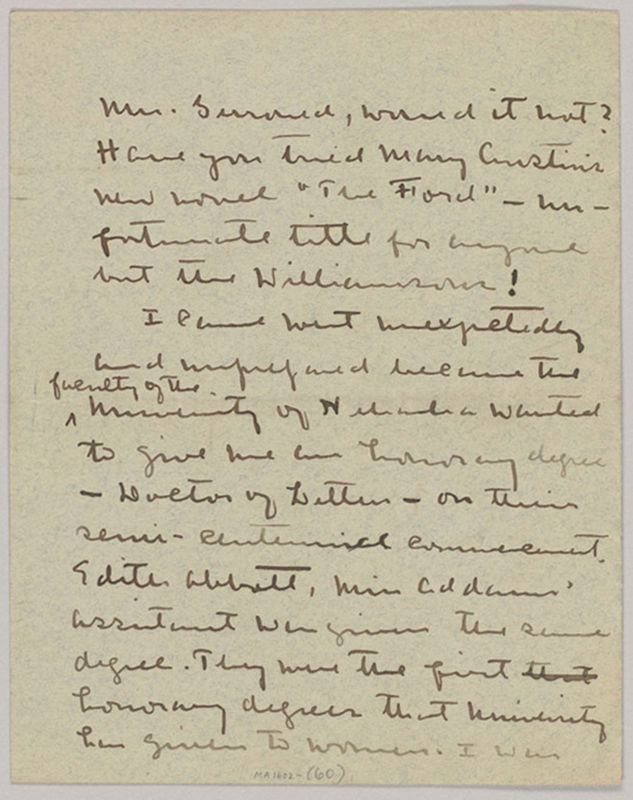 Mrs. Seroned, would it not?
Have you tried Mary Austin's
new novel "The Ford" — un-
fortunate title for anyone
but the Williamsons!
I came west unexpectedly
and unprepared because the
faculty of the
University of Nebraska wanted
to give me an honorary degree
— Doctor of Letters — on their
semi-centennial commencement.
Edith Abbott, Miss Addams'
assistant was given the same
degree. They were the first that
honorary degrees that University
has given to women. I was
MA 1602-(60)